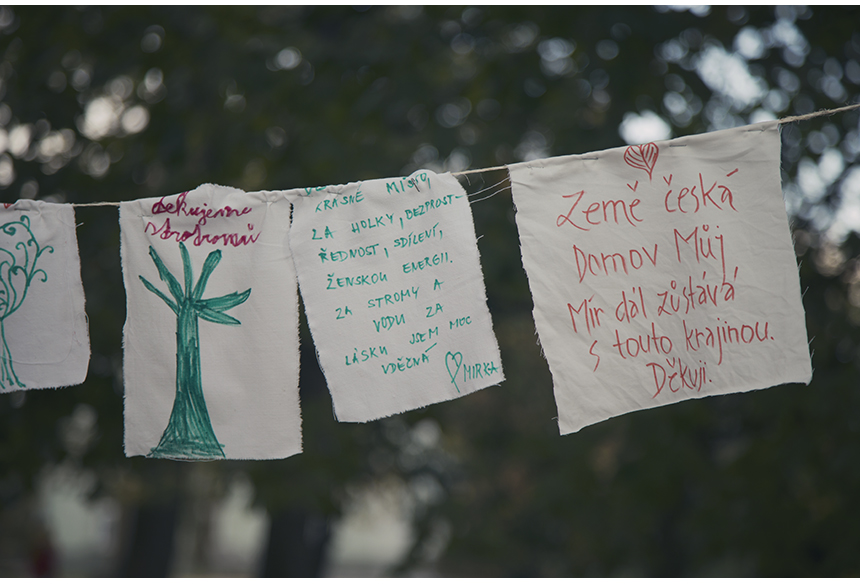 děkujeme
stromům
KRÁSNÉ MÍSTO
ZA HOLKY, BEZPROST-
ŘEDNOST, SDÍLENÍ,
ŽENSKOU ENERGII.
ZA STROMY A
VODU ZA
LÁSKU JSEM MOC
VDĚČNÁ
MIRKA
Země česká
Domov Můj
Mír dál zůstává
s touto krajinou.
Děkuji.